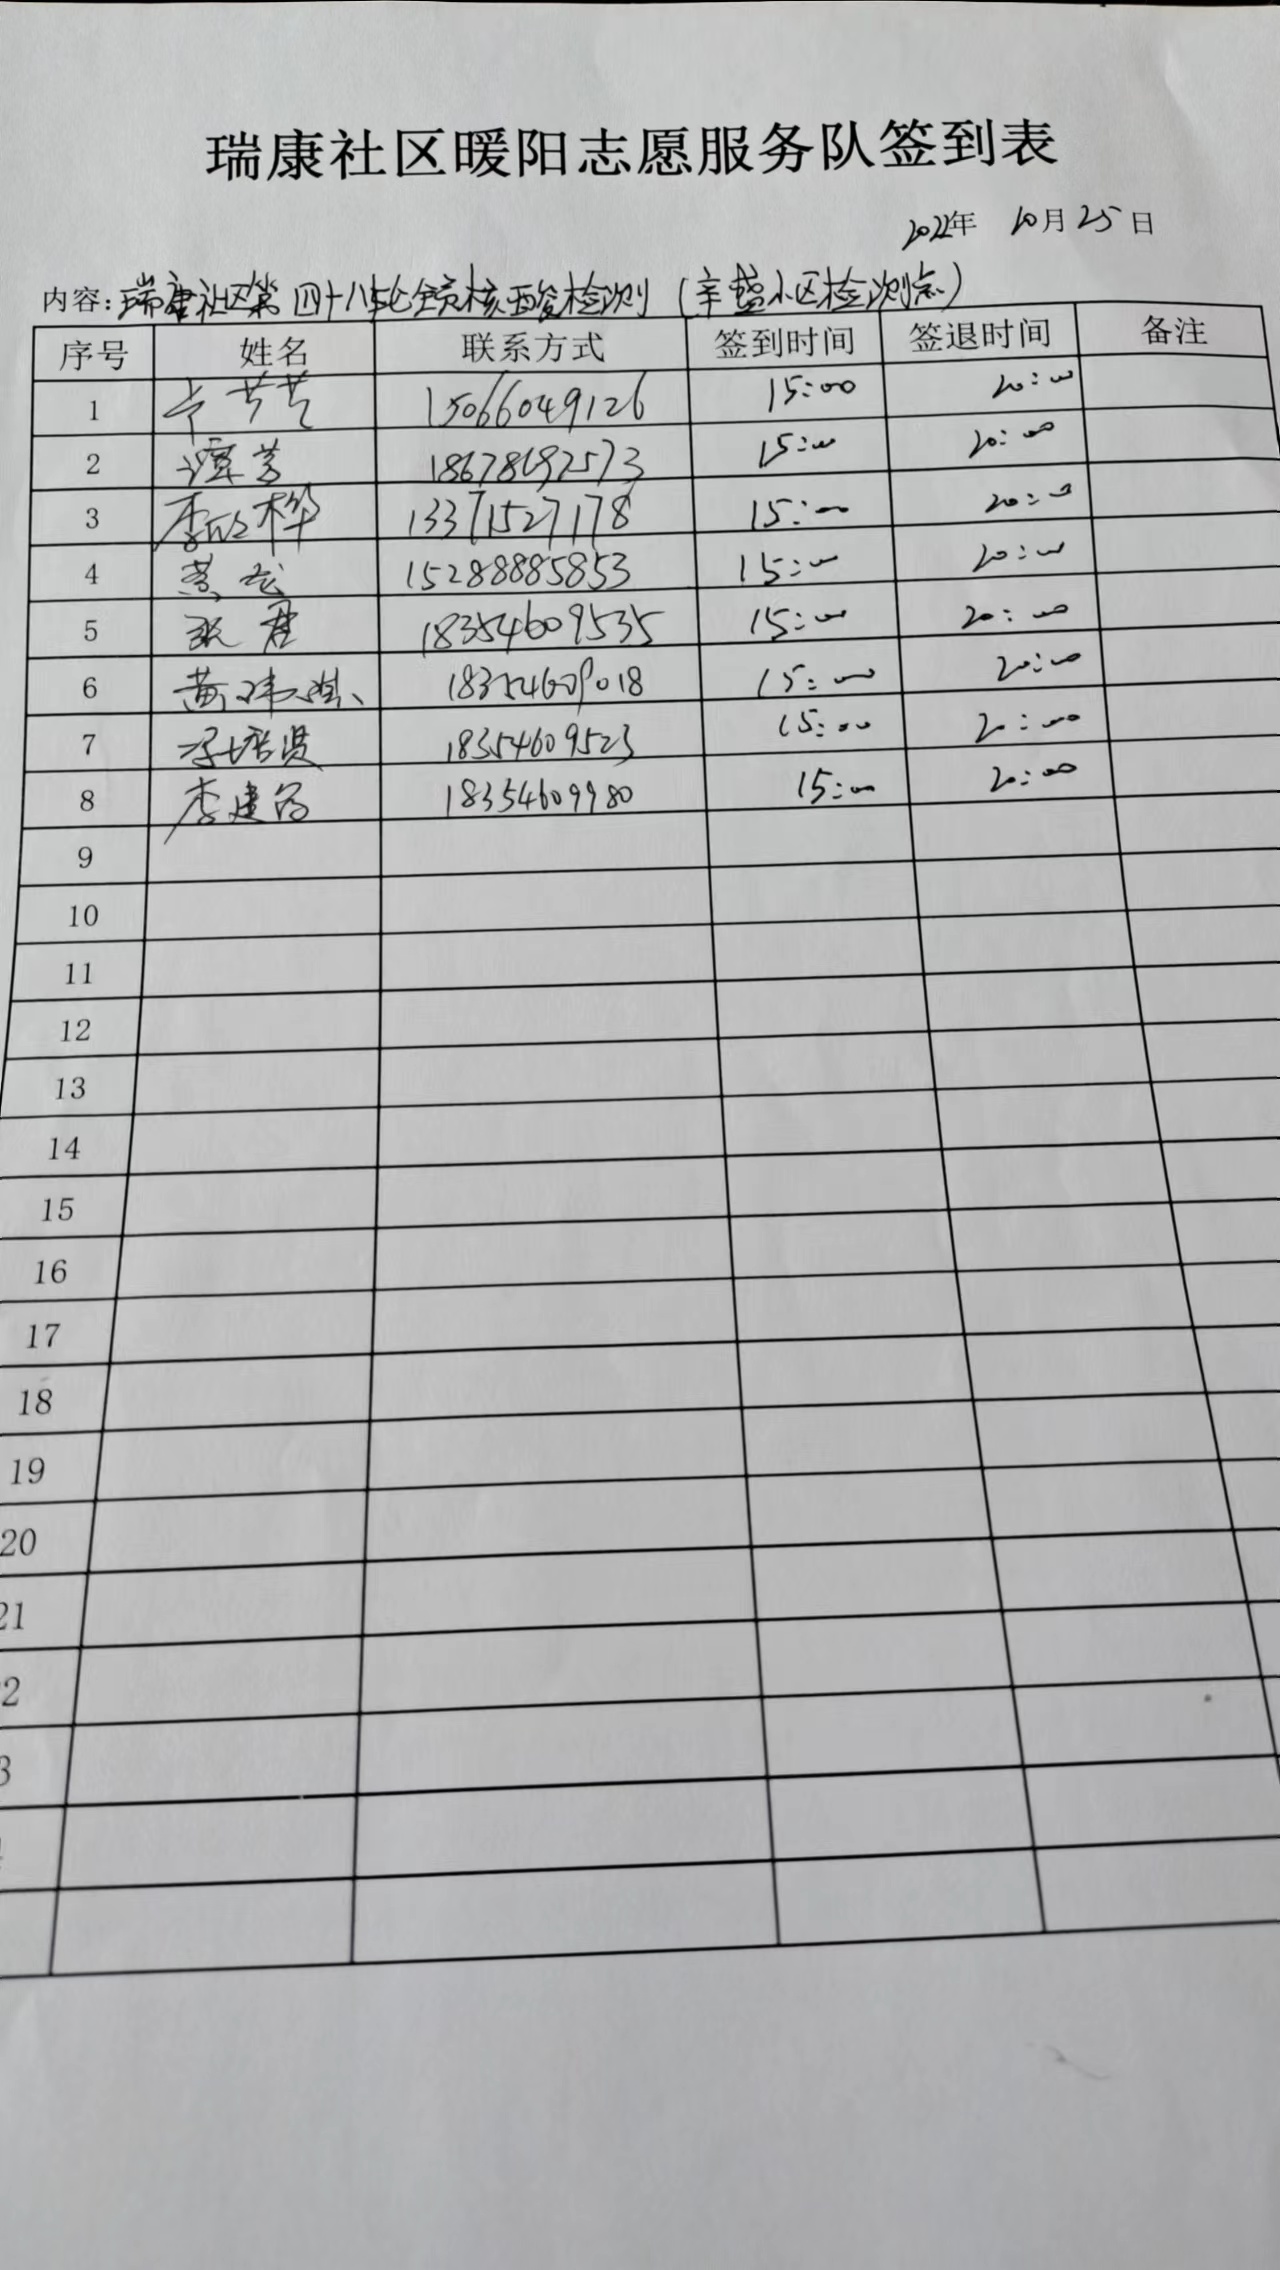 瑞康社区暖阳志愿服务队签到表
2022年 10月25日
内容:瑞康社区第四十八轮全员核酸检测(辛盛小区检测点)
序号 姓名 联系方式 签到时间 签退时间 备注
1 15066049126 15:00 20:00
2 谭芳 18678692573 15:00 20:00
3 李欣桦 13371527178 15:00 20:00
4 15288885853 15:00 20:00
5 张君 18354609535 15:00 20:00
6 黄玮琪 18354609018 15:00 20:00
7 冯培贤 18354609523 15:00 20:00
8 18354609980 15:00 20:00
9
10
11
12
13
14
15
16
17
18
19
20
21
2
3